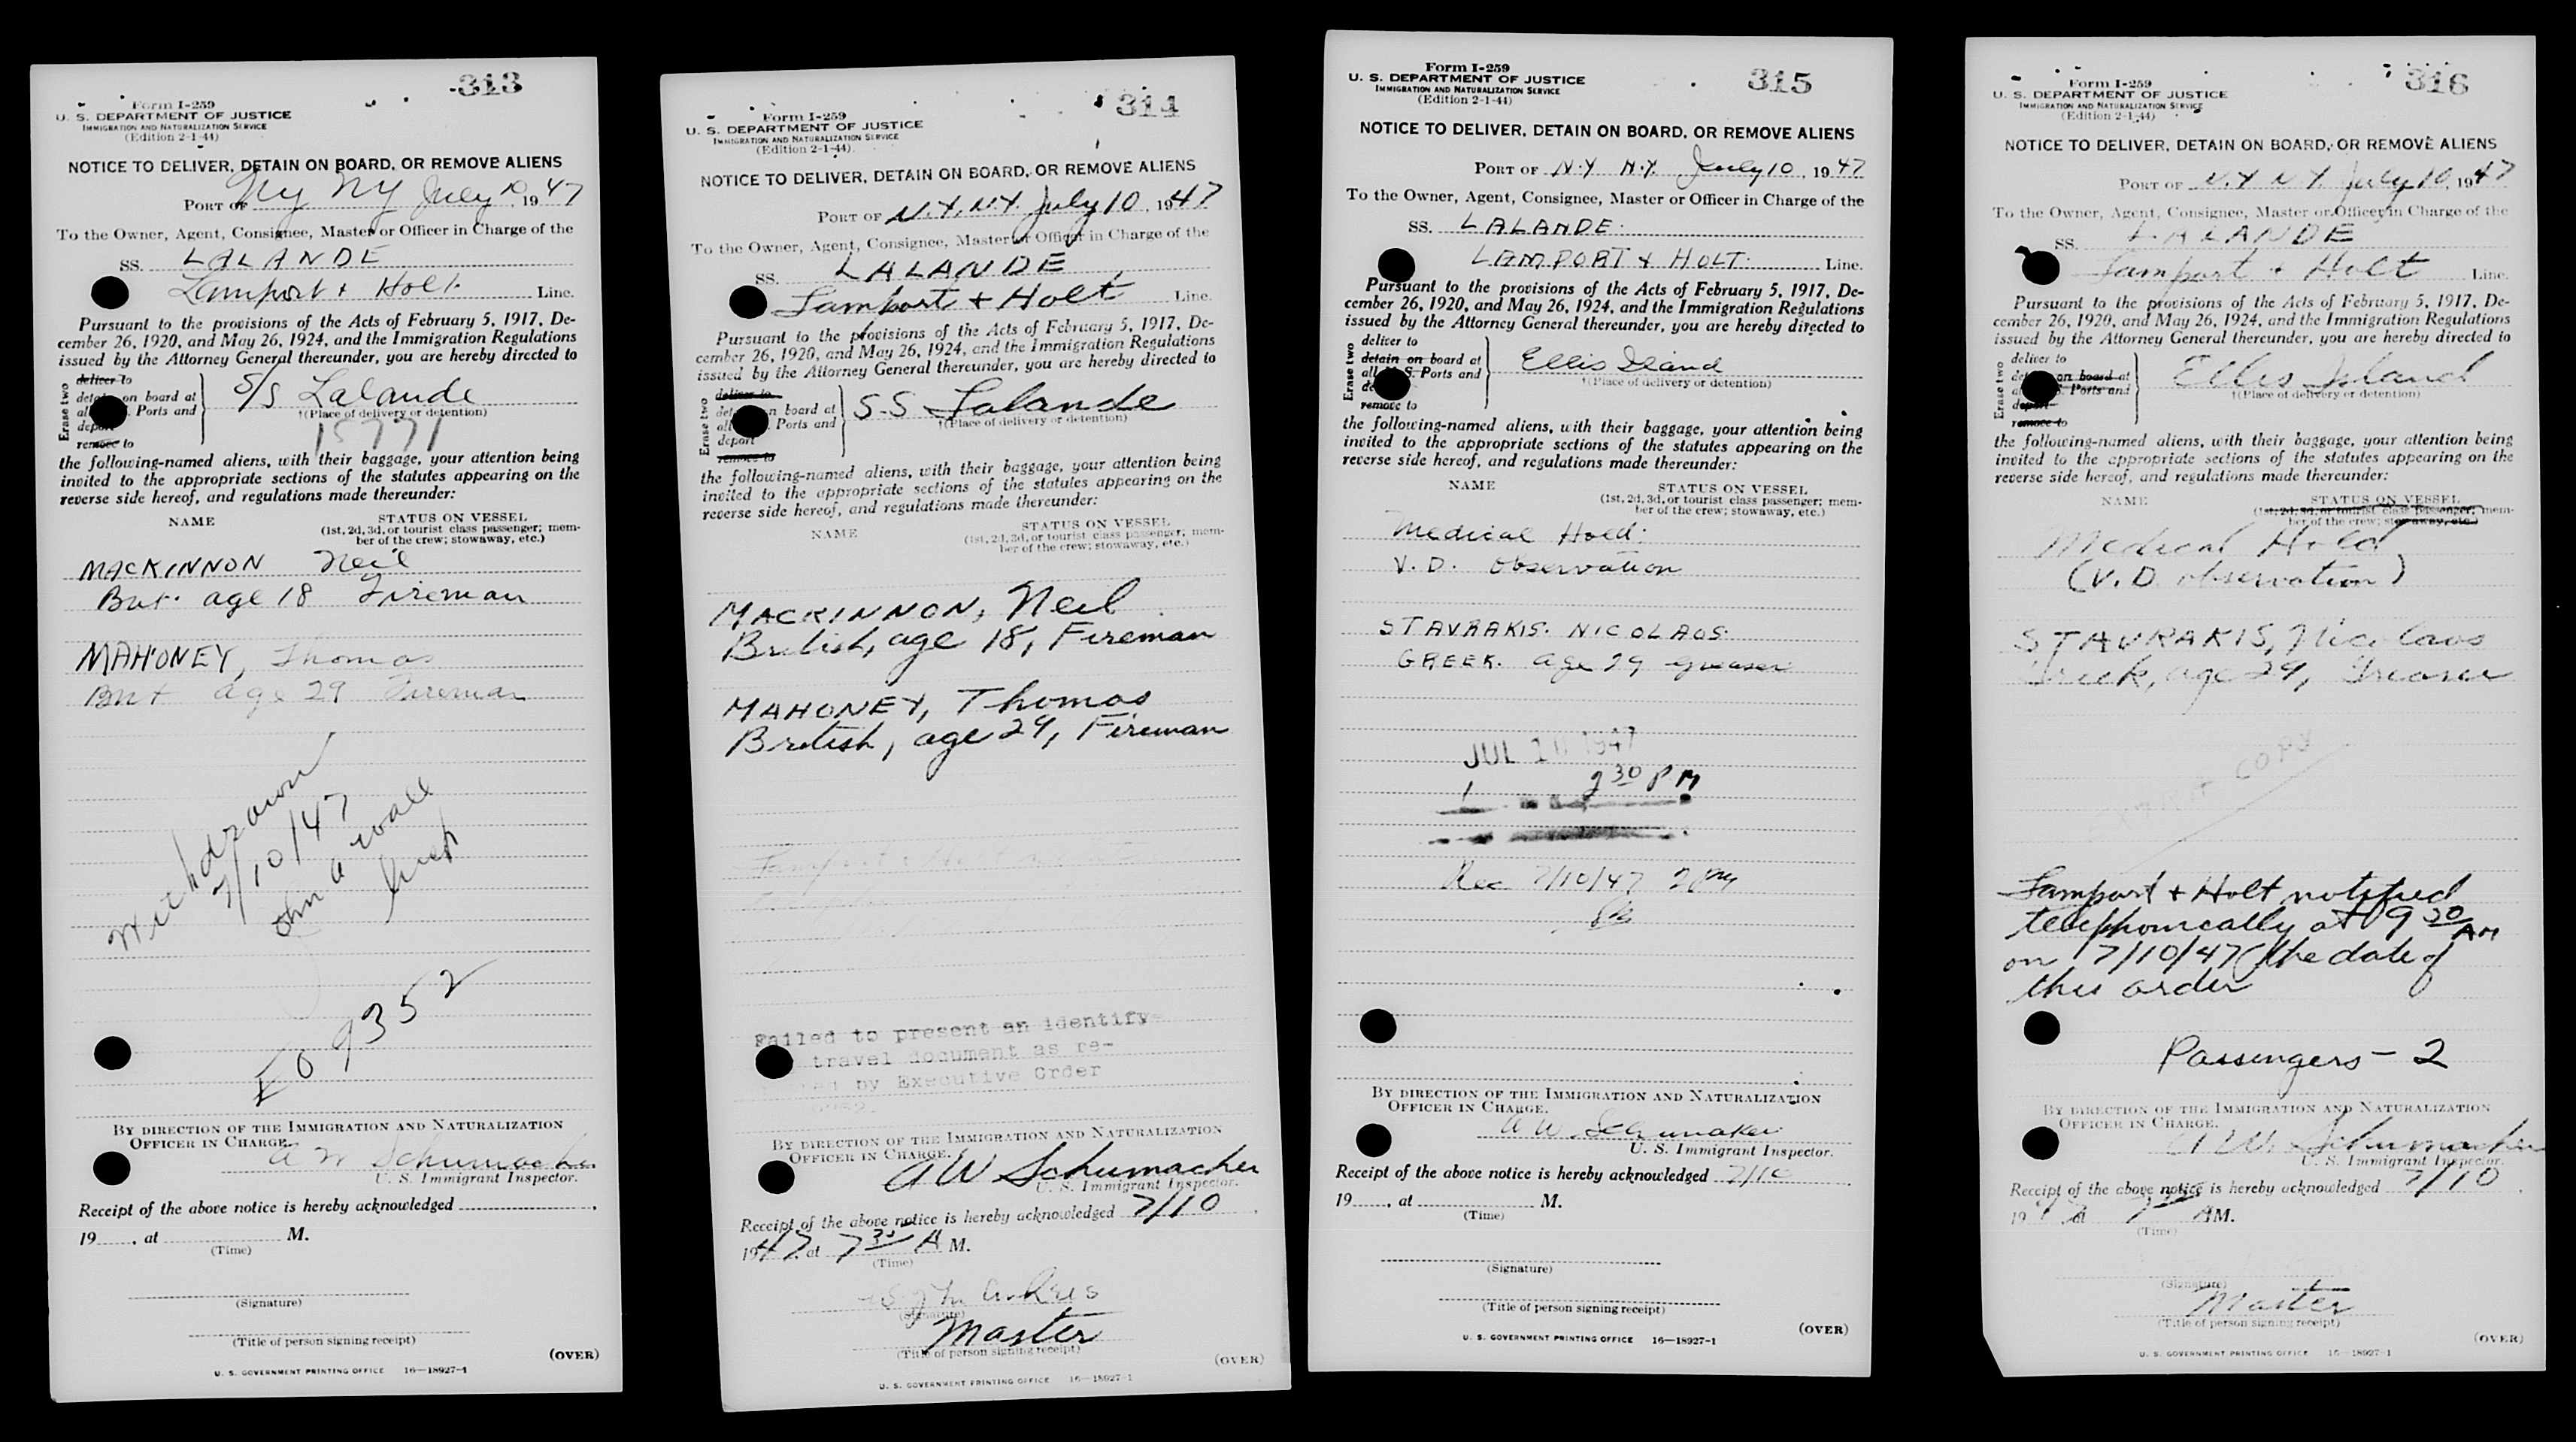 313
Form I-259
U. S. DEPARTMENT OF JUSTICE
IMMIGRATION AND NATURALIZATION SERVICE
(Edition 2-1-44)
NOTICE TO DELIVER, DETAIN ON BOARD, OR REMOVE ALIENS
PORT OF Ny NY July 10, 1947
To the Owner, Agent, Consignee, Master or Officer in Charge of the
SS. LALANDE
Lamport + Holt Line.
Pursuant to the provisions of the Acts of February 5, 1917, De-
cember 26, 1920, and May 26, 1924, and the Immigration Regulations
issued by the Attorney General thereunder, you are hereby directed to
Erase two
deliver to
on board at
Ports and
remove to
S/S Lalande
†(Place of delivery or detention)
15771
the following-named aliens, with their baggage, your attention being
invited to the appropriate sections of the statutes appearing on the
reverse side hereof, and regulations made thereunder:
NAME STATUS ON VESSEL
(1st, 2d, 3d, or tourist class passenger; mem-
ber of the crew; stowaway, etc.)
MACKINNON Neil
Brit. age 18 Fireman
MAHONEY, Thomas
Brit age 29 Fireman
Withdrawn
7/10/47
John a wall
Insp
EO 9352
BY DIRECTION OF THE IMMIGRATION AND NATURALIZATION
OFFICER IN CHARGE.
A W Schumacher
U. S. Immigrant Inspector.
Receipt of the above notice is hereby acknowledged
19 , at M.
(Time)
(Signature)
(Title of person signing receipt)
(OVER)
U. S. GOVERNMENT PRINTING OFFICE 16—18927-1
314
Form I-259
U. S. DEPARTMENT OF JUSTICE
IMMIGRATION AND NATURALIZATION SERVICE
(Edition 2-1-44)
NOTICE TO DELIVER, DETAIN ON BOARD, OR REMOVE ALIENS
PORT OF N.Y. N.Y. July 10, 1947
To the Owner, Agent, Consignee, Master or Officer in Charge of the
SS. LALANDE
Lamport + Holt Line.
Pursuant to the provisions of the Acts of February 5, 1917, De-
cember 26, 1920, and May 26, 1924, and the Immigration Regulations
issued by the Attorney General thereunder, you are hereby directed to
Erase two
deliver to
on board at
Ports and
deport
remove to
S.S Lalande
†(Place of delivery or detention)
the following-named aliens, with their baggage, your attention being
invited to the appropriate sections of the statutes appearing on the
reverse side hereof, and regulations made thereunder:
NAME STATUS ON VESSEL
(1st, 2d, 3d, or tourist class passenger; mem-
ber of the crew; stowaway, etc.)
MACKINNON, Neil
British, age 18, Fireman
MAHONEY, Thomas
British, age 29, Fireman
Failed to present an identify
travel document as re-
by Executive Order
BY DIRECTION OF THE IMMIGRATION AND NATURALIZATION
OFFICER IN CHARGE.
A W Schumacher
U. S. Immigrant Inspector.
Receipt of the above notice is hereby acknowledged 7/10
1947, at 7 30 A M.
(Time)
(Signature)
Master
(Title of person signing receipt)
(OVER)
U. S. GOVERNMENT PRINTING OFFICE 16—18927-1
315
Form I-259
U. S. DEPARTMENT OF JUSTICE
IMMIGRATION AND NATURALIZATION SERVICE
(Edition 2-1-44)
NOTICE TO DELIVER, DETAIN ON BOARD, OR REMOVE ALIENS
PORT OF N.Y. N.Y. July 10, 1947
To the Owner, Agent, Consignee, Master or Officer in Charge of the
SS. LALANDE
LAMPORT & HOLT Line.
Pursuant to the provisions of the Acts of February 5, 1917, De-
cember 26, 1920, and May 26, 1924, and the Immigration Regulations
issued by the Attorney General thereunder, you are hereby directed to
Erase two
deliver to
detain on board at
all S. Ports and
remove to
Ellis Island
†(Place of delivery or detention)
the following-named aliens, with their baggage, your attention being
invited to the appropriate sections of the statutes appearing on the
reverse side hereof, and regulations made thereunder:
NAME STATUS ON VESSEL
(1st, 2d, 3d, or tourist class passenger; mem-
ber of the crew; stowaway, etc.)
Medical Hold:
V. D. Observation
STAVRAKIS. NICOLAOS.
GREEK. age 29 greaser
JUL 10 1947
2 30 PM
Rec 7/10/47 2 PM
BY DIRECTION OF THE IMMIGRATION AND NATURALIZATION
OFFICER IN CHARGE.
A W Schumaker
U. S. Immigrant Inspector.
Receipt of the above notice is hereby acknowledged 7/10
19 , at M.
(Time)
(Signature)
(Title of person signing receipt)
(OVER)
U. S. GOVERNMENT PRINTING OFFICE 16—18927-1
316
Form I-259
U. S. DEPARTMENT OF JUSTICE
IMMIGRATION AND NATURALIZATION SERVICE
(Edition 2-1-44)
NOTICE TO DELIVER, DETAIN ON BOARD, OR REMOVE ALIENS
PORT OF N.Y N.Y. July 10, 1947
To the Owner, Agent, Consignee, Master or Officer in Charge of the
SS. LALANDE
Lamport + Holt Line.
Pursuant to the provisions of the Acts of February 5, 1917, De-
cember 26, 1920, and May 26, 1924, and the Immigration Regulations
issued by the Attorney General thereunder, you are hereby directed to
Erase two
deliver to
on board at
Ports and
deport
remove to
Ellis Island
†(Place of delivery or detention)
the following-named aliens, with their baggage, your attention being
invited to the appropriate sections of the statutes appearing on the
reverse side hereof, and regulations made thereunder:
NAME STATUS ON VESSEL
(1st, 2d, 3d, or tourist class passenger; mem-
ber of the crew; stowaway, etc.)
Medical Hold
(V. D. observation)
STAVRAKIS, Nicolaos
Greek, age 29, Greaser
COPY
Lamport + Holt notified
telephonically at 9 30 AM
on 7/10/47 (the date of
this order
Passengers - 2
BY DIRECTION OF THE IMMIGRATION AND NATURALIZATION
OFFICER IN CHARGE.
A W. Schumacher
U. S. Immigrant Inspector.
Receipt of the above notice is hereby acknowledged 7/10
1947 at 7 30 A M.
(Time)
(Signature)
Master
(Title of person signing receipt)
(OVER)
U. S. GOVERNMENT PRINTING OFFICE 16—18927-1